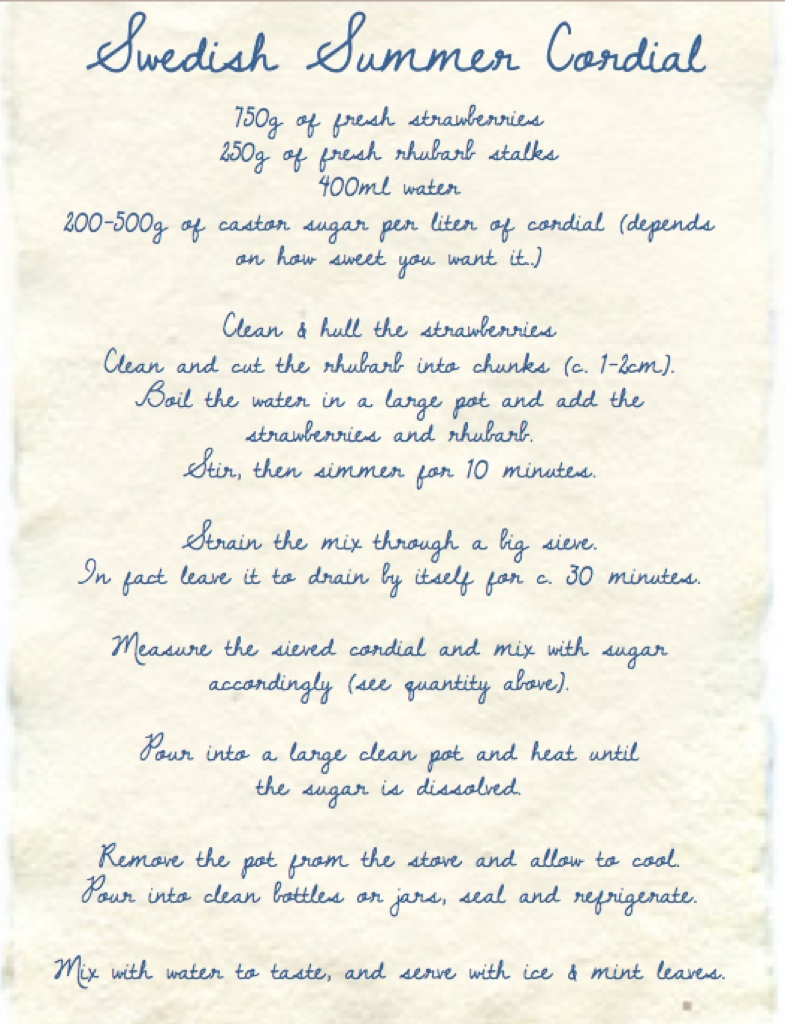 Swedish Summer Cordial
750g of fresh strawberries
250g of fresh rhubarb stalks
400ml water
200-500g of castor sugar per liter of cordial (depends
on how sweet you want it..)
Clean & hull the strawberries
Clean and cut the rhubarb into chunks (c. 1-2cm).
Boil the water in a large pot and add the
strawberries and rhubarb.
Stir, then simmer for 10 minutes.
Strain the mix through a big sieve.
In fact leave it to drain by itself for c. 30 minutes.
Measure the sieved cordial and mix with sugar
accordingly (see quantity above).
Pour into a large clean pot and heat until
the sugar is dissolved.
Remove the pot from the stove and allow to cool.
Pour into clean bottles or jars, seal and refrigerate.
Mix with water to taste, and serve with ice & mint leaves.